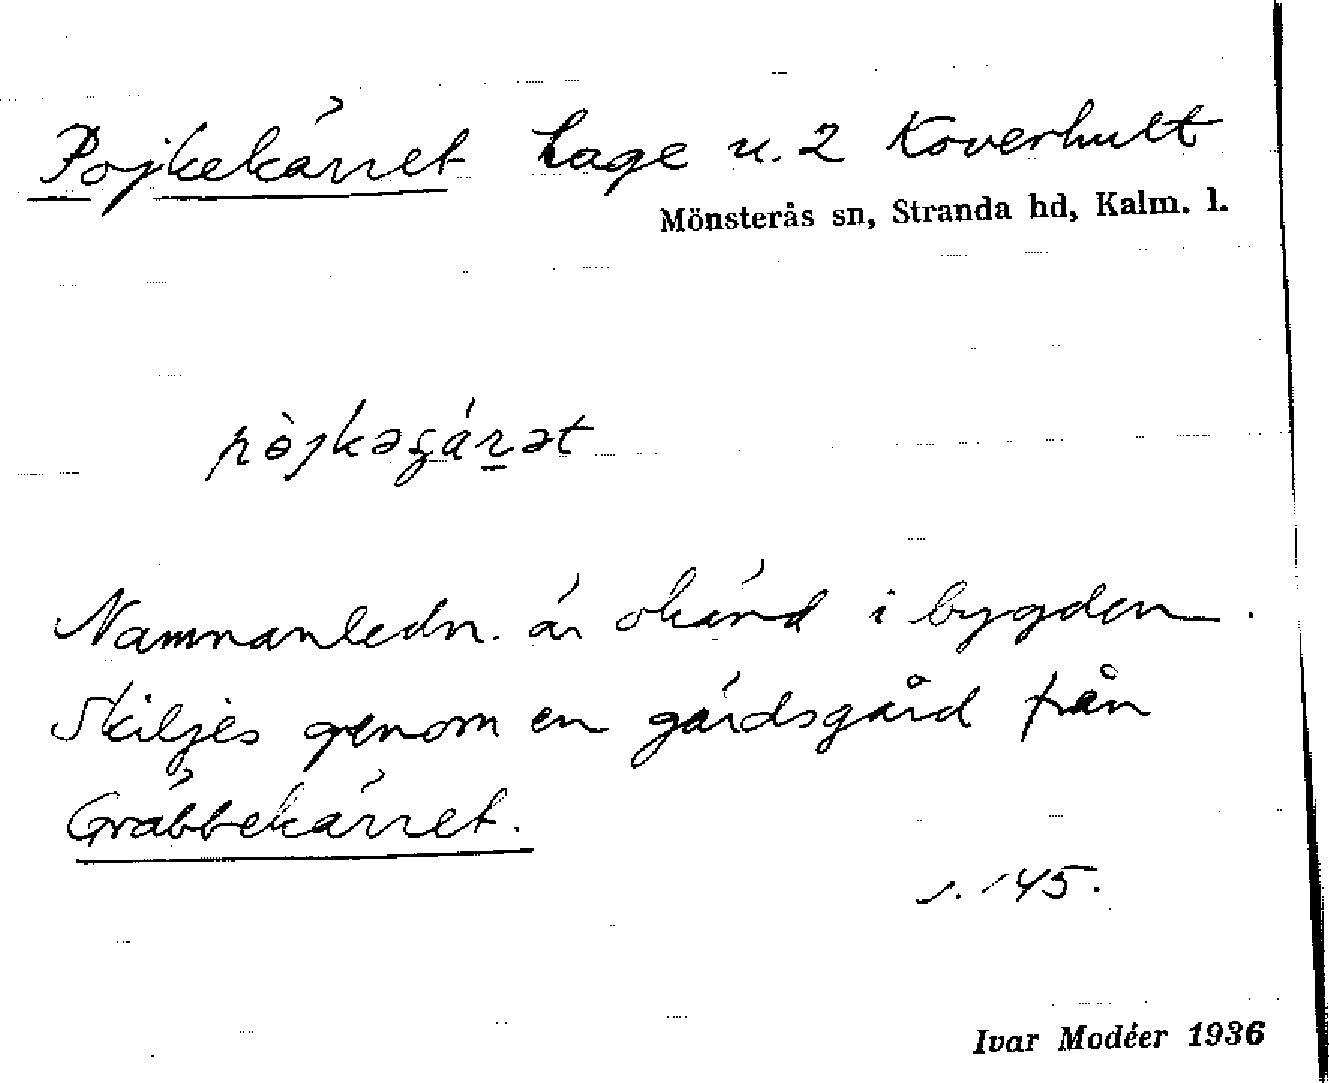 Pojkekärret hage u. 2 Koverhult
Mönsterås sn, Stranda hd, Kalm. l.
Namnanledn. är okänd i bygden.
Skiljes genom en gärdsgård från
Gräbbekärret.
s. 145.
Ivar Modéer 1936